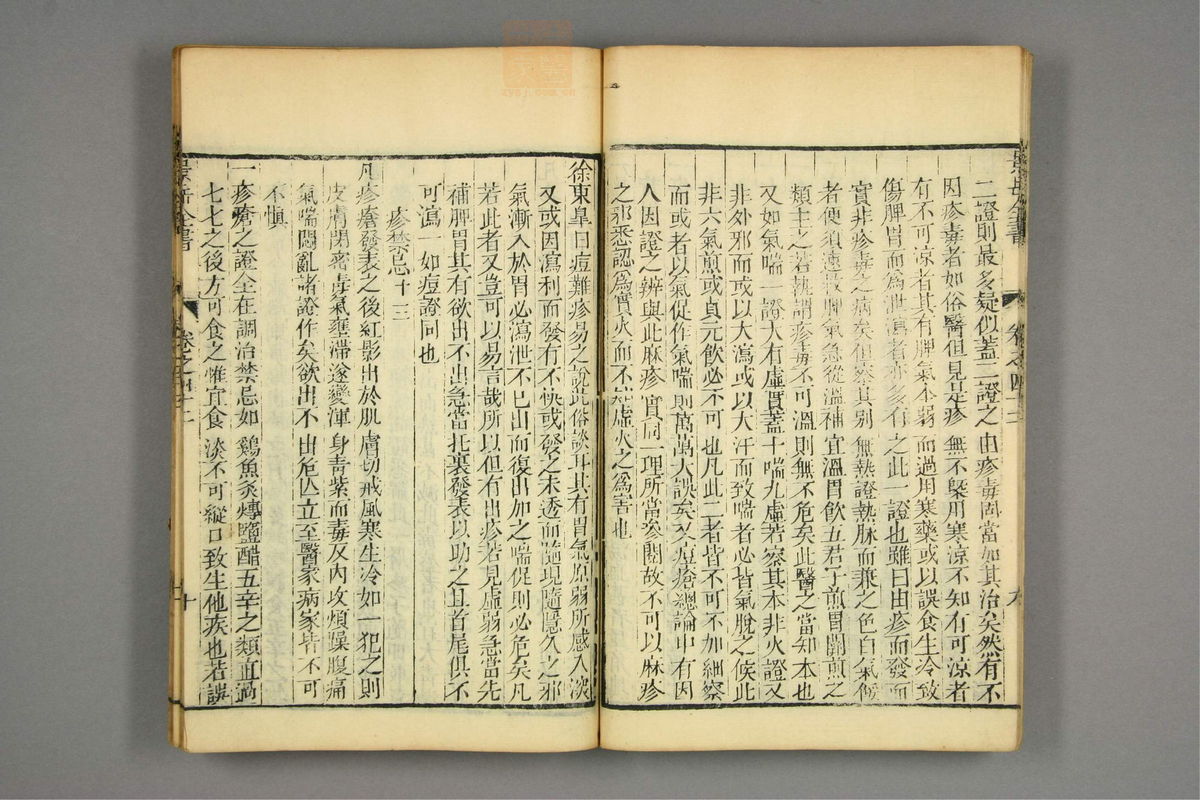 景岳全書
卷之四十三
九
二證則最多疑似蓋二證之由疹毒固當加其治矣然有不
因疹毒者如俗醫但見是疹無不槩用寒涼不知有可涼者
有不可涼者其有脾氣本弱而過用寒藥或以誤食生冷致
傷脾胃而爲泄瀉者亦多有之此一證也雖曰由疹而發而
實非疹毒之病矣但察其別無熱證熱脉而兼之色白氣餒
者便須速救脾氣急從溫補宜溫胃飲五君子煎胃關煎之
類主之若執謂疹毒不可溫則無不危矣此醫之當知本也
又如氣喘一證大有虛實蓋十喘九虛若察其本非火證又
非外邪而或以大瀉或以大汗而致喘者必皆氣脫之候此
非六氣煎或貞元飲必不可也凡此二者皆不可不加細察
而或者以氣促作氣喘則萬萬大誤矣又痘瘡總論中有因
人因證之辨與此麻疹實同一理所當參閱故不可以麻疹
之邪悉認爲實火而不知虛火之爲害也
徐東皐曰痘難疹易之說此俗談耳其有胃氣原弱所感入深
又或因瀉利而發有不快或發之未透而隨現隨隱久之邪
氣漸入於胃必瀉泄不已出而復出加之喘促則必危矣凡
若此者又豈可以易言哉所以但有出疹若見虛弱急當先
補脾胃其有欲出不出急當托裏發表以助之且首尾俱不
可瀉一如痘證同也
疹禁忌十三
凡疹瘡發表之後紅影出於肌膚切戒風寒生冷如一犯之則
皮膚閉密毒氣壅滯遂變渾身青紫而毒反內攻煩躁腹痛
氣喘悶亂諸證作矣欲出不出危亾立至醫家病家皆不可
不慎
一疹瘡之證全在調治禁忌如雞魚炙煿鹽醋五辛之類直過
七七之後方可食之惟宜食淡不可縱口致生他疾也若誤
景岳全書
卷之四十三
十
zysj.com.cn